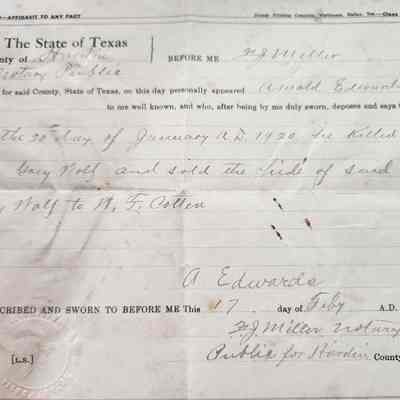 —AFFIDAVIT TO ANY FACT
The State of Texas
nty of Hardin
Notary Public
BEFORE ME W J Miller
for said County, State of Texas, on this day personally appeared Arnold Edwards
to me well known, and who, after being by me duly sworn, deposes and says t
the 30 day of January A.D. 1920 he killed
Gray Wolf and sold the hide of said
y Wolf to W. F. Cotten
A Edwards
CRIBED AND SWORN TO BEFORE ME This 17 day of Feby A.D.
W J Miller Notary
[L.S.] Public for Hardin County